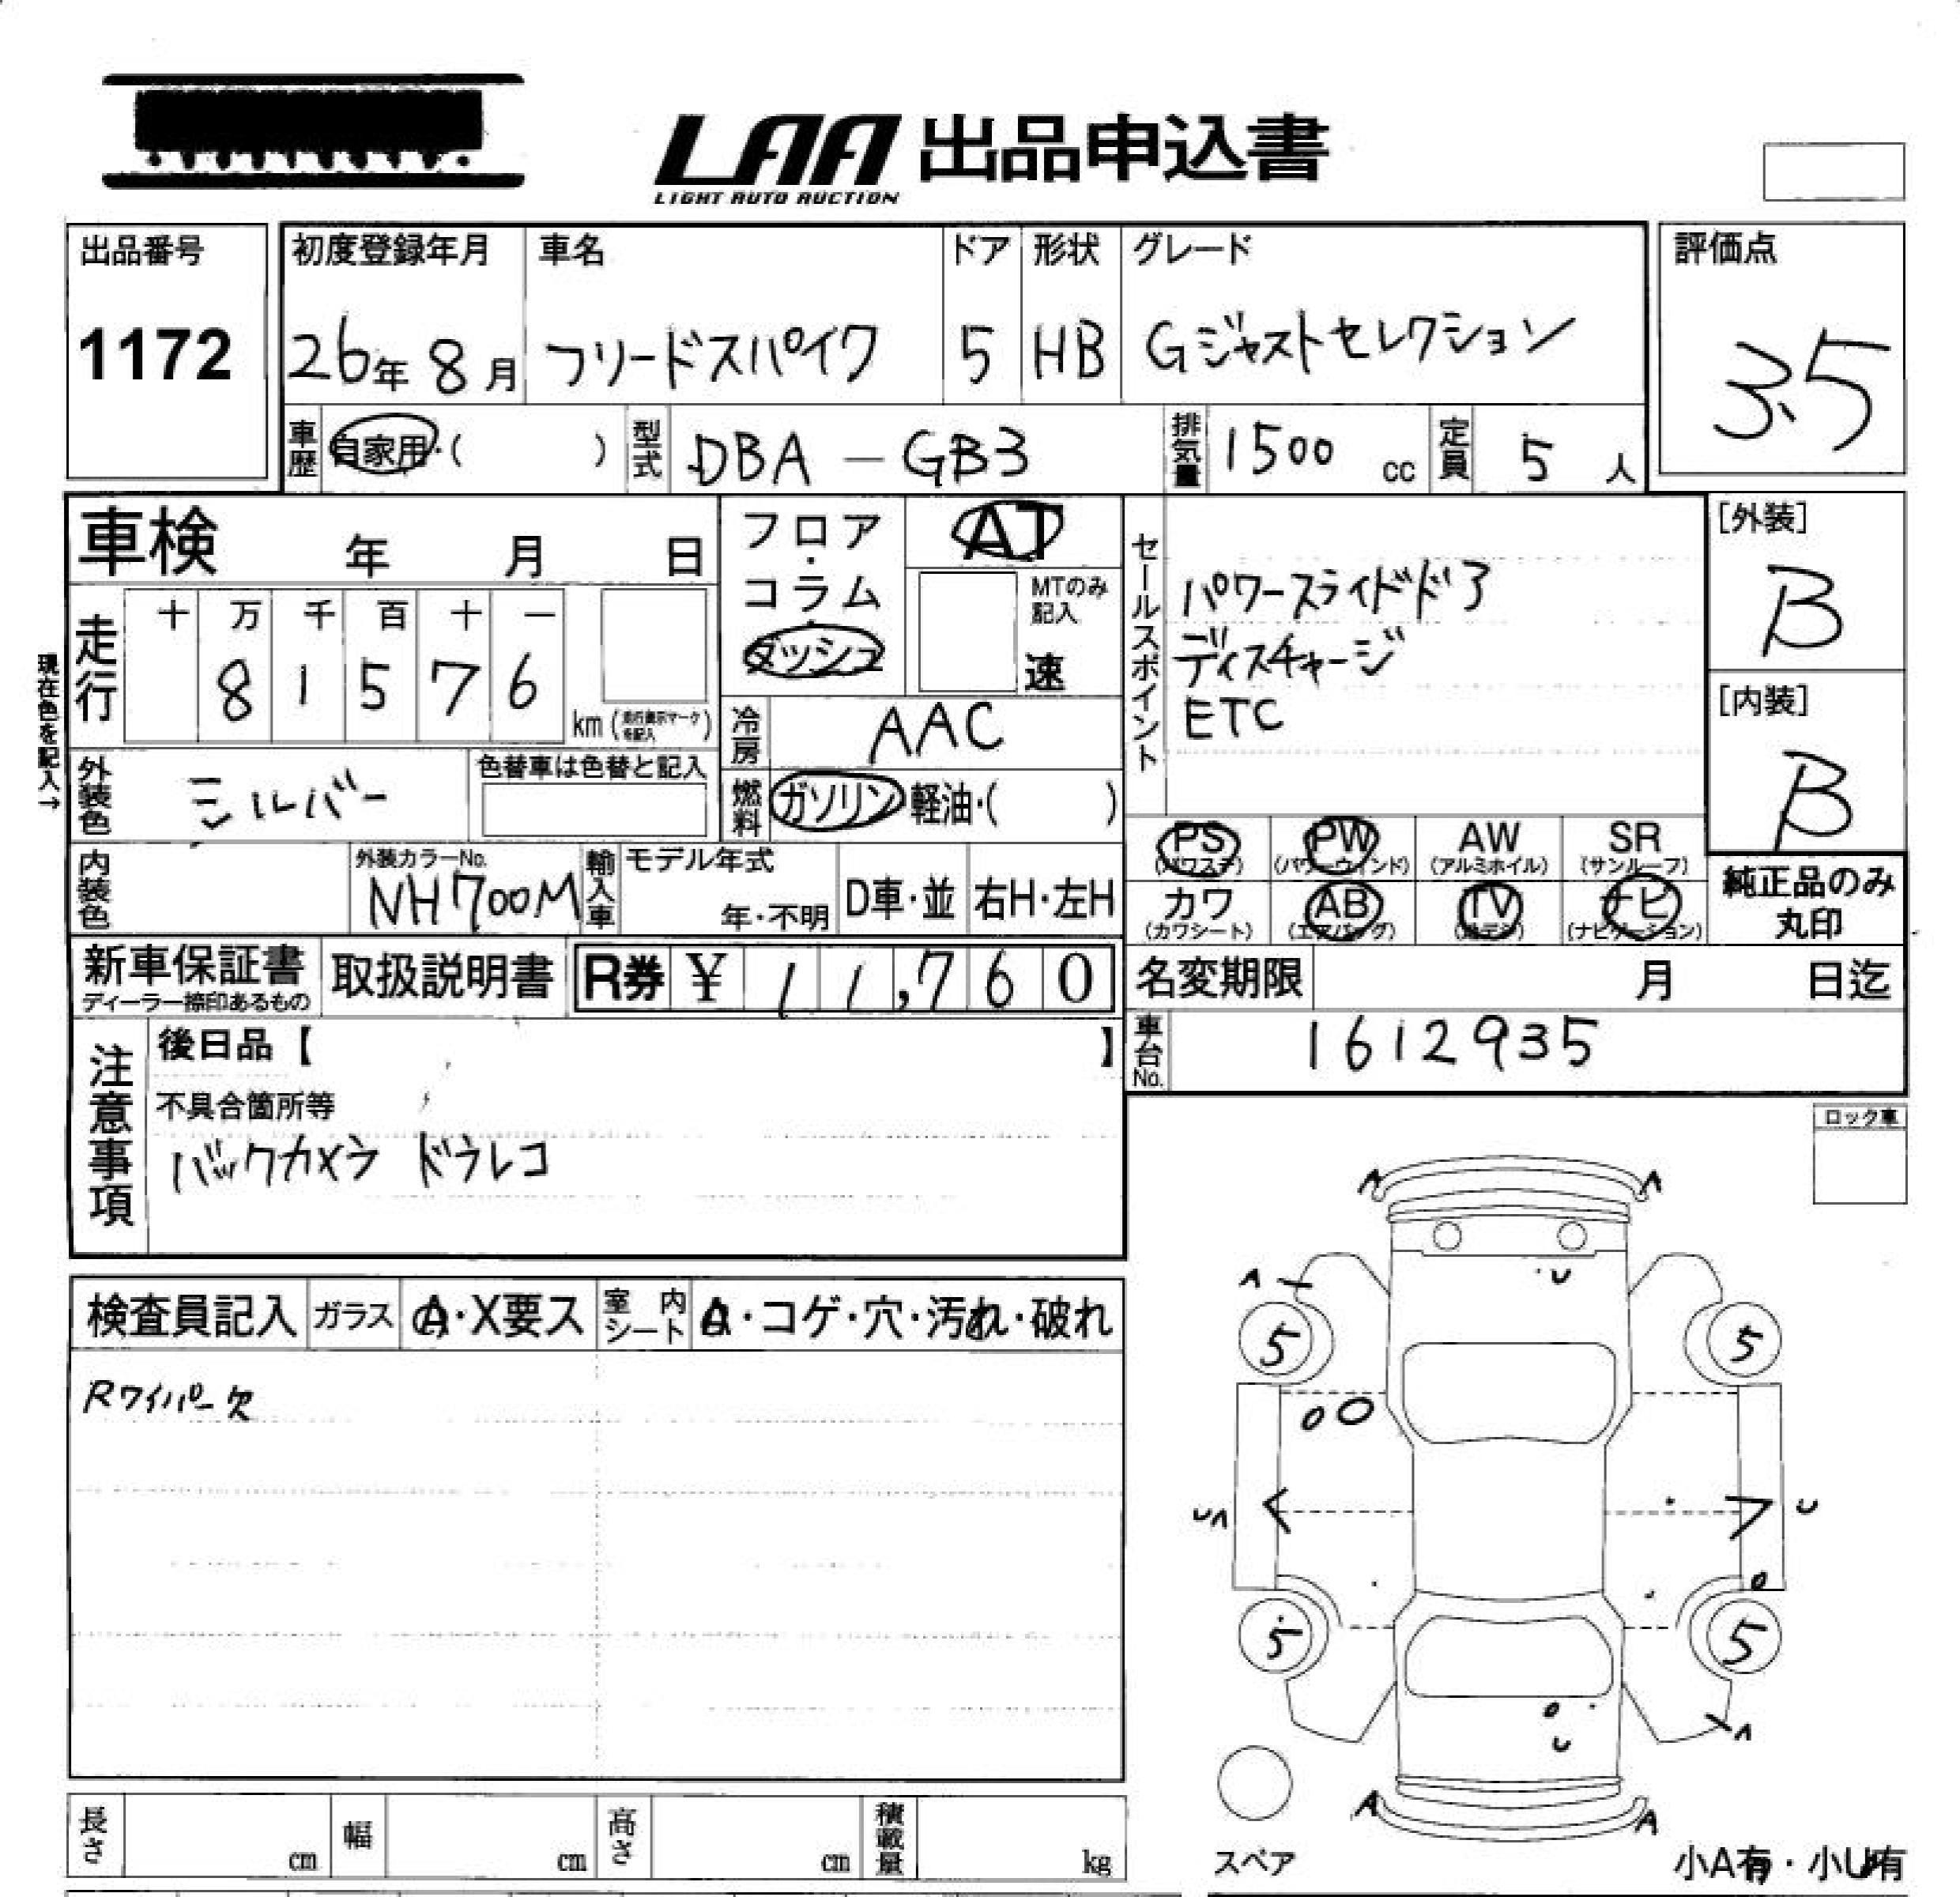 LAA 出品申込書
LIGHT AUTO AUCTION
出品番号
1172
初度登録年月
26年 8月
車名
フリードスパイク
ドア
5
形状
HB
グレード
Gジャストセレクション
評価点
3.5
車歴 自家用・( )
型式 DBA - GB3
排気量 1500 cc
定員 5 人
車検 年 月 日
フロア・コラム・ダッシュ
AT
MTのみ記入
速
セールスポイント
パワースライドドア
ディスチャージ
ETC
[外装]
B
[内装]
B
現在色を記入→
走行
十 万 千 百 十 一
8 1 5 7 6
km (走行表示マークを記入)
冷房 AAC
外装色 シルバー
色替車は色替と記入
燃料 ガソリン 軽油・( )
PS (パワステ) PW (パワーウィンド) AW (アルミホイル) SR (サンルーフ)
カワ (カワシート) AB (エアバッグ) TV (テレビ) ナビ (ナビゲーション)
純正品のみ
丸印
内装色
外装カラーNo.
NH700M
輸入車
モデル年式
年・不明
D車・並
右H・左H
新車保証書
ディーラー捺印あるもの
取扱説明書
R券 ¥ 11,760
名変期限 月 日迄
車台No. 1612935
注意事項
後日品【 】
不具合箇所等
バックカメラ ドラレコ
ロック車
検査員記入 ガラス A・X要ス 室内シート A・コゲ・穴・汚れ・破れ
Rワイパー欠
A A
A U
5 5
U A U
5 5
U A
A A
スペア
小A有・小U有
長さ cm 幅 cm 高さ cm 積載量 kg